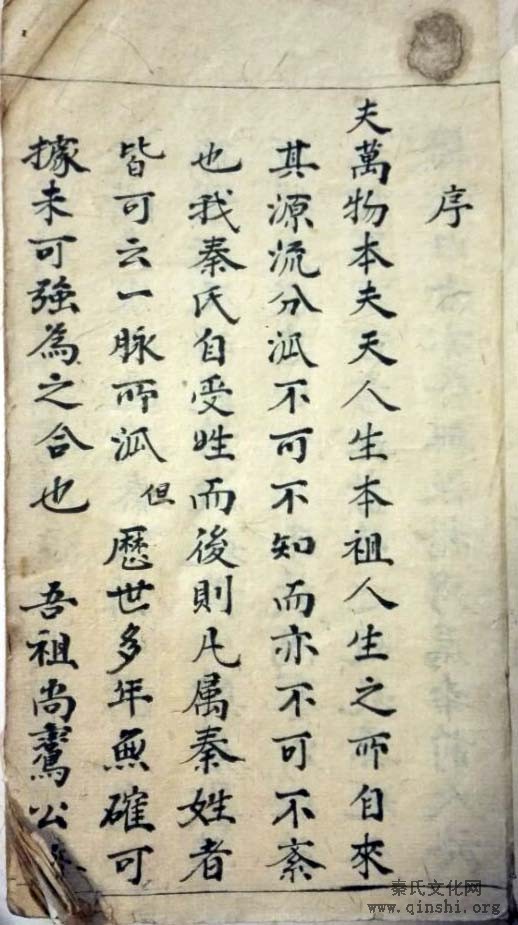 序
夫萬物本夫天人生本祖人生之所自來
其源流分派不可不知而亦不可不紊
也我秦氏自受姓而後則凡属秦姓者
皆可云一脉所派但歷世多年無確可
據未可強為之合也 吾祖尚公
秦氏文化网
www.qinshi.org